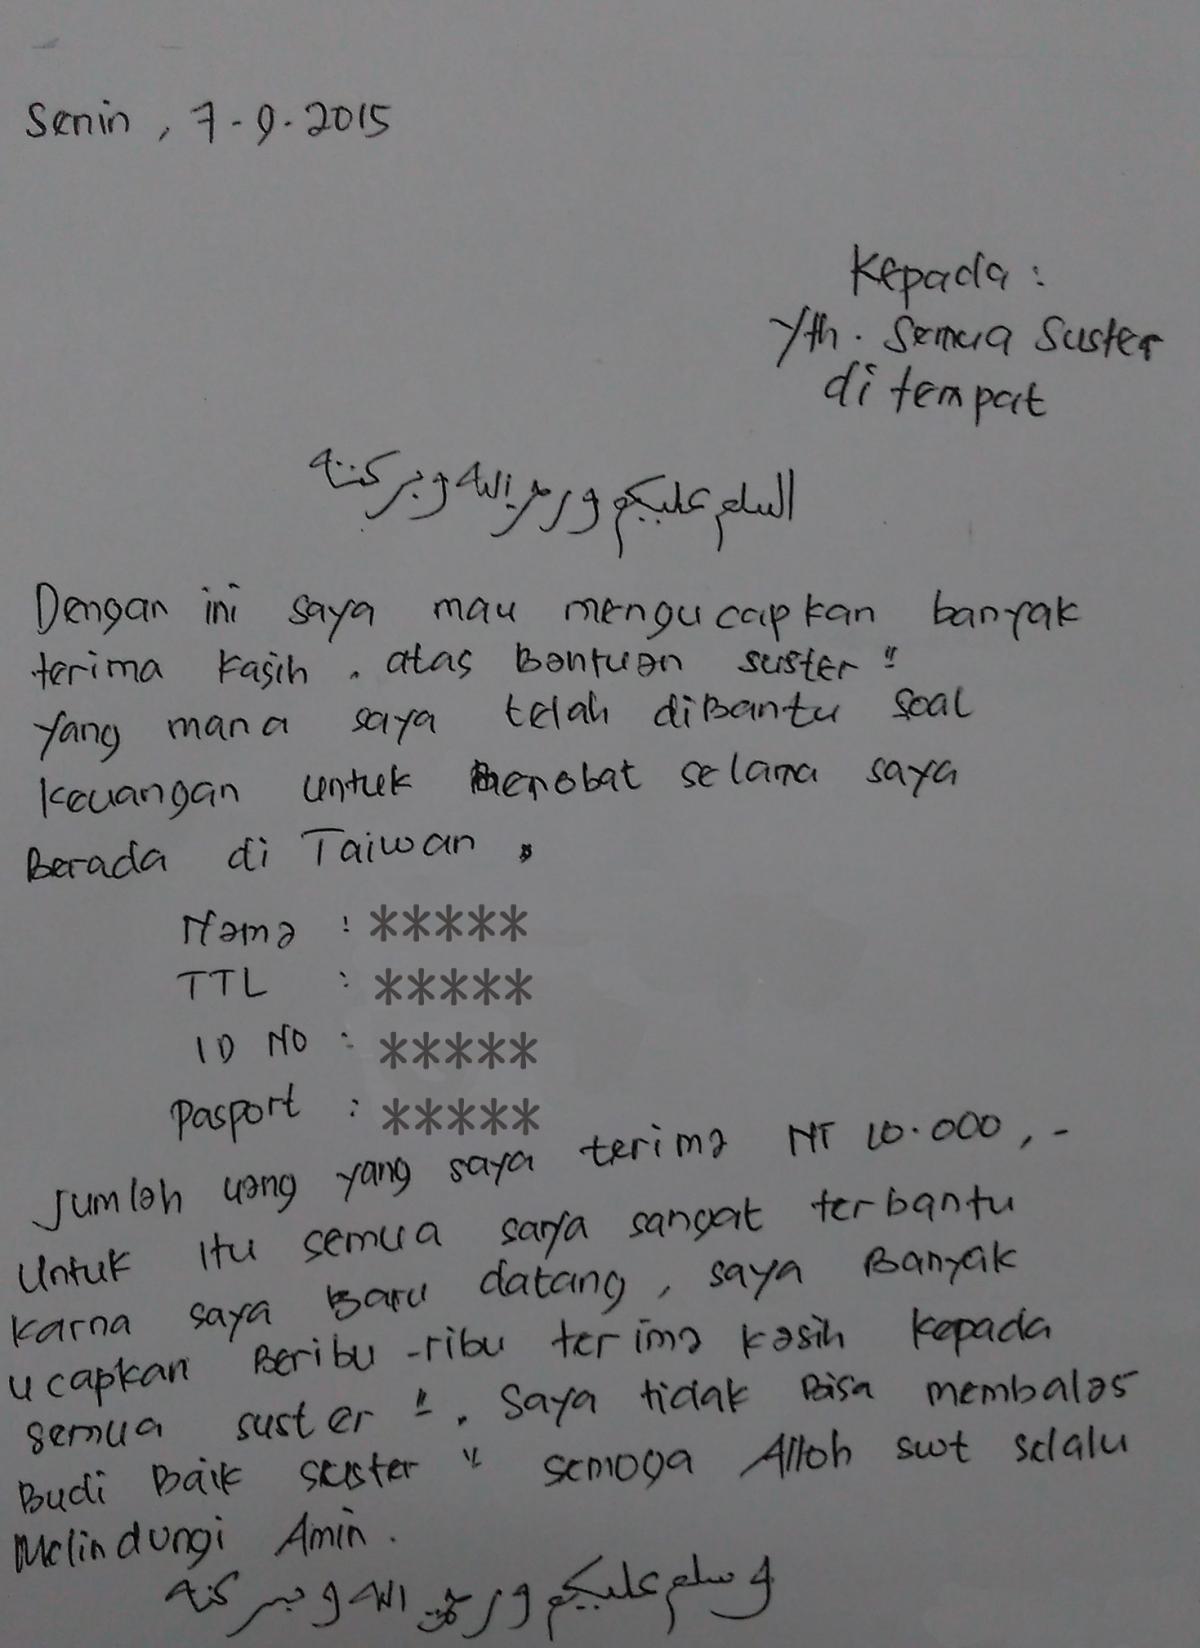 Senin, 7-9-2015
Kepada :
Yth. Semua Suster
di tempat
السلم عليكم ورحمة الله وبركته
Dengan ini saya mau mengucapkan banyak
terima kasih. atas Bantuan suster "
yang mana saya telah diBantu soal
keuangan untuk Berobat selama saya
Berada di Taiwan.
Nama : *****
TTL : *****
ID NO : *****
Pasport : *****
Jumlah uang yang saya terima NT 10.000,-
Untuk itu semua saya sangat terbantu
karna saya Baru datang, saya Banyak
ucapkan Beribu-ribu terima kasih kepada
semua suster ". Saya tidak Bisa membalas
Budi Baik suster " semoga Alloh swt selalu
Melindungi Amin.
و سلم عليكم ورحمة الله وبركته